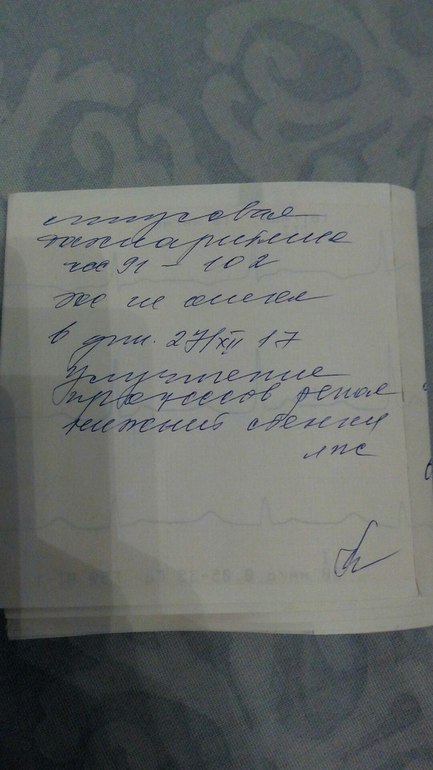 синусовая
тахиаритмия
чсс 91 - 102
эос не откл
в дин. 27/XII 17
Улучшение
процессов репол
нижней стенки
лж